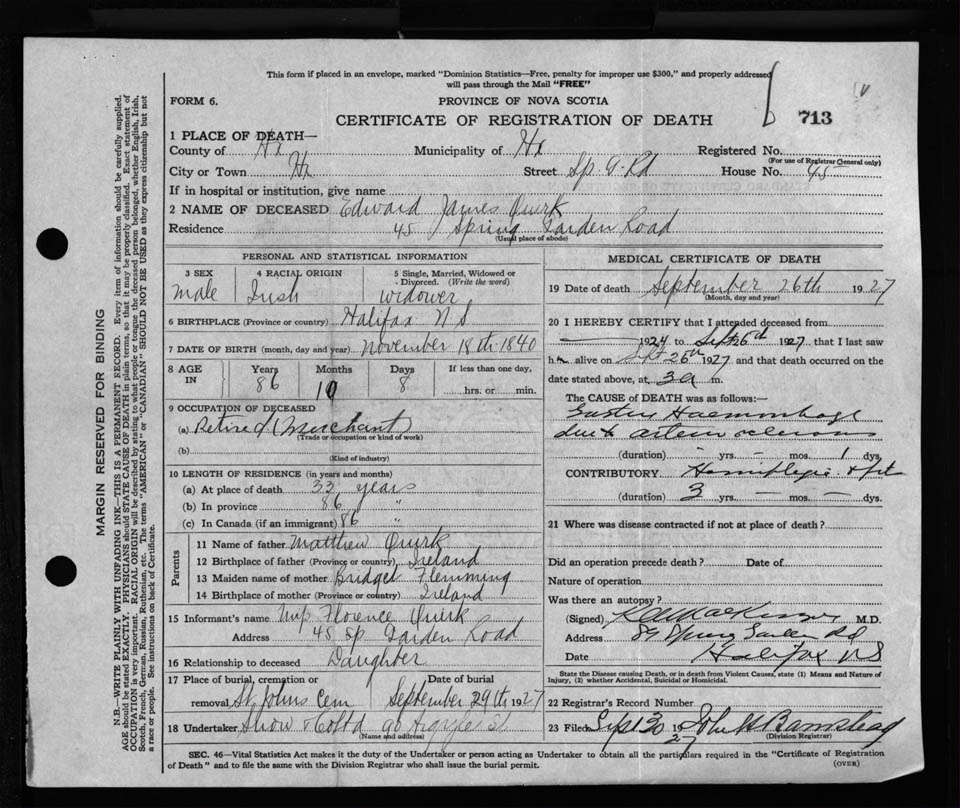 This form if placed in an envelope, marked "Dominion Statistics—Free, penalty for improper use $300," and properly addressed
will pass through the Mail "FREE"
FORM 6.
PROVINCE OF NOVA SCOTIA
CERTIFICATE OF REGISTRATION OF DEATH
713
1 PLACE OF DEATH—
County of Hx Municipality of Hx Registered No.
(For use of Registrar General only)
City or Town Hx Street Sp. G. Rd House No. 45
If in hospital or institution, give name
2 NAME OF DECEASED Edward James Quirk
Residence 45 Spring Garden Road
(Usual place of abode)
PERSONAL AND STATISTICAL INFORMATION
3 SEX 4 RACIAL ORIGIN 5 Single, Married, Widowed or Divorced. (Write the word)
male Irish widower
6 BIRTHPLACE (Province or country) Halifax N S
7 DATE OF BIRTH (month, day and year) November 18th 1840
8 AGE IN Years Months Days If less than one day,
86 10 8 hrs. or min.
9 OCCUPATION OF DECEASED
(a) Retired (Merchant)
(Trade or occupation or kind of work)
(b)
(Kind of industry)
10 LENGTH OF RESIDENCE (in years and months)
(a) At place of death 33 years
(b) In province 86 "
(c) In Canada (if an immigrant) 86 "
Parents
11 Name of father Matthew Quirk
12 Birthplace of father (Province or country) Ireland
13 Maiden name of mother Bridget Flemming
14 Birthplace of mother (Province or country) Ireland
15 Informant's name Florence Quirk
Address 45 Sp Garden Road
16 Relationship to deceased Daughter
17 Place of burial, cremation or removal Date of burial
St Johns Cem September 29th 1927
18 Undertaker Snow & Co Ltd 90 Argyle St
(Name and address)
MEDICAL CERTIFICATE OF DEATH
19 Date of death September 26th 1927
(Month, day and year)
20 I HEREBY CERTIFY that I attended deceased from
1924 to 1927, that I last saw
h alive on Sept 25th 1927 and that death occurred on the
date stated above, at 3 a m.
The CAUSE OF DEATH was as follows:—
Gastric Haemorrhage
due to arterio sclerosis
(duration) - yrs. - mos. 1 dys.
CONTRIBUTORY Hemiplegia
(duration) 3 yrs. — mos. — dys.
21 Where was disease contracted if not at place of death?
Did an operation precede death? Date of
Nature of operation
Was there an autopsy?
(Signed) M.D.
Address 89 Spring Garden Rd
Date Halifax NS
State the Disease causing Death, or in death from Violent Causes, state (1) Means and Nature of
Injury, (2) whether Accidental, Suicidal or Homicidal.
22 Registrar's Record Number
23 Filed Sept 30 1927 John
(Division Registrar)
SEC. 46—Vital Statistics Act makes it the duty of the Undertaker or person acting as Undertaker to obtain all the particulars required in the "Certificate of Registration
of Death" and to file the same with the Division Registrar who shall issue the burial permit.
(OVER)
MARGIN RESERVED FOR BINDING
N.B.—WRITE PLAINLY WITH UNFADING INK—THIS IS A PERMANENT RECORD. Every item of information should be carefully supplied.
AGE should be stated EXACTLY. PHYSICIANS should STATE CAUSE OF DEATH in plain terms, so that it may be properly classified. Exact statement of
OCCUPATION is very important. RACIAL ORIGIN will be described by stating to what people or tongue the deceased person belonged, whether English, Irish,
Scotch, French, German, Russian, Ruthenian, etc. The terms "AMERICAN" or "CANADIAN" SHOULD NOT BE USED as they express citizenship but not
a race or people. See instructions on back of Certificate.